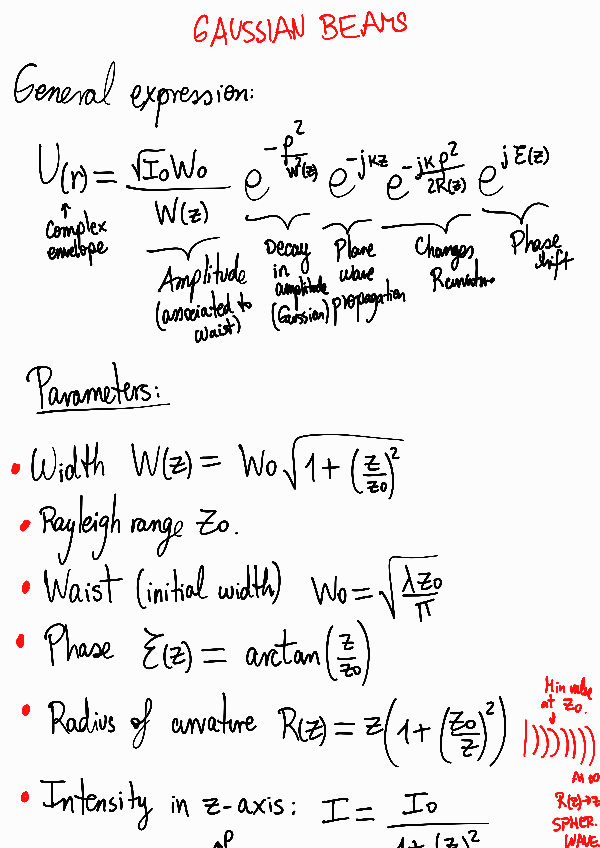 GAUSSIAN BEAMS
General expression:
U(r) = √I₀ W₀ / W(z) e^(-ρ²/W²(z)) e^(-jkz) e^(-jkρ²/2R(z)) e^(jξ(z))
↑ Complex envelope
Amplitude (associated to waist)
Decay in amplitude (Gaussian)
Plane wave propagation
Changes R
Phase shift
Parameters:
• Width W(z) = W₀ √(1 + (z/z₀)²)
• Rayleigh range z₀.
• Waist (initial width) W₀ = √(λz₀/π)
• Phase ξ(z) = arctan(z/z₀)
• Radius of curvature R(z) = z(1 + (z₀/z)²)
Min value
at z₀.
At ∞
R(z)→z
SPHER.
WAVE.
• Intensity in z-axis: I = I₀ / 1+(z)²
ρ